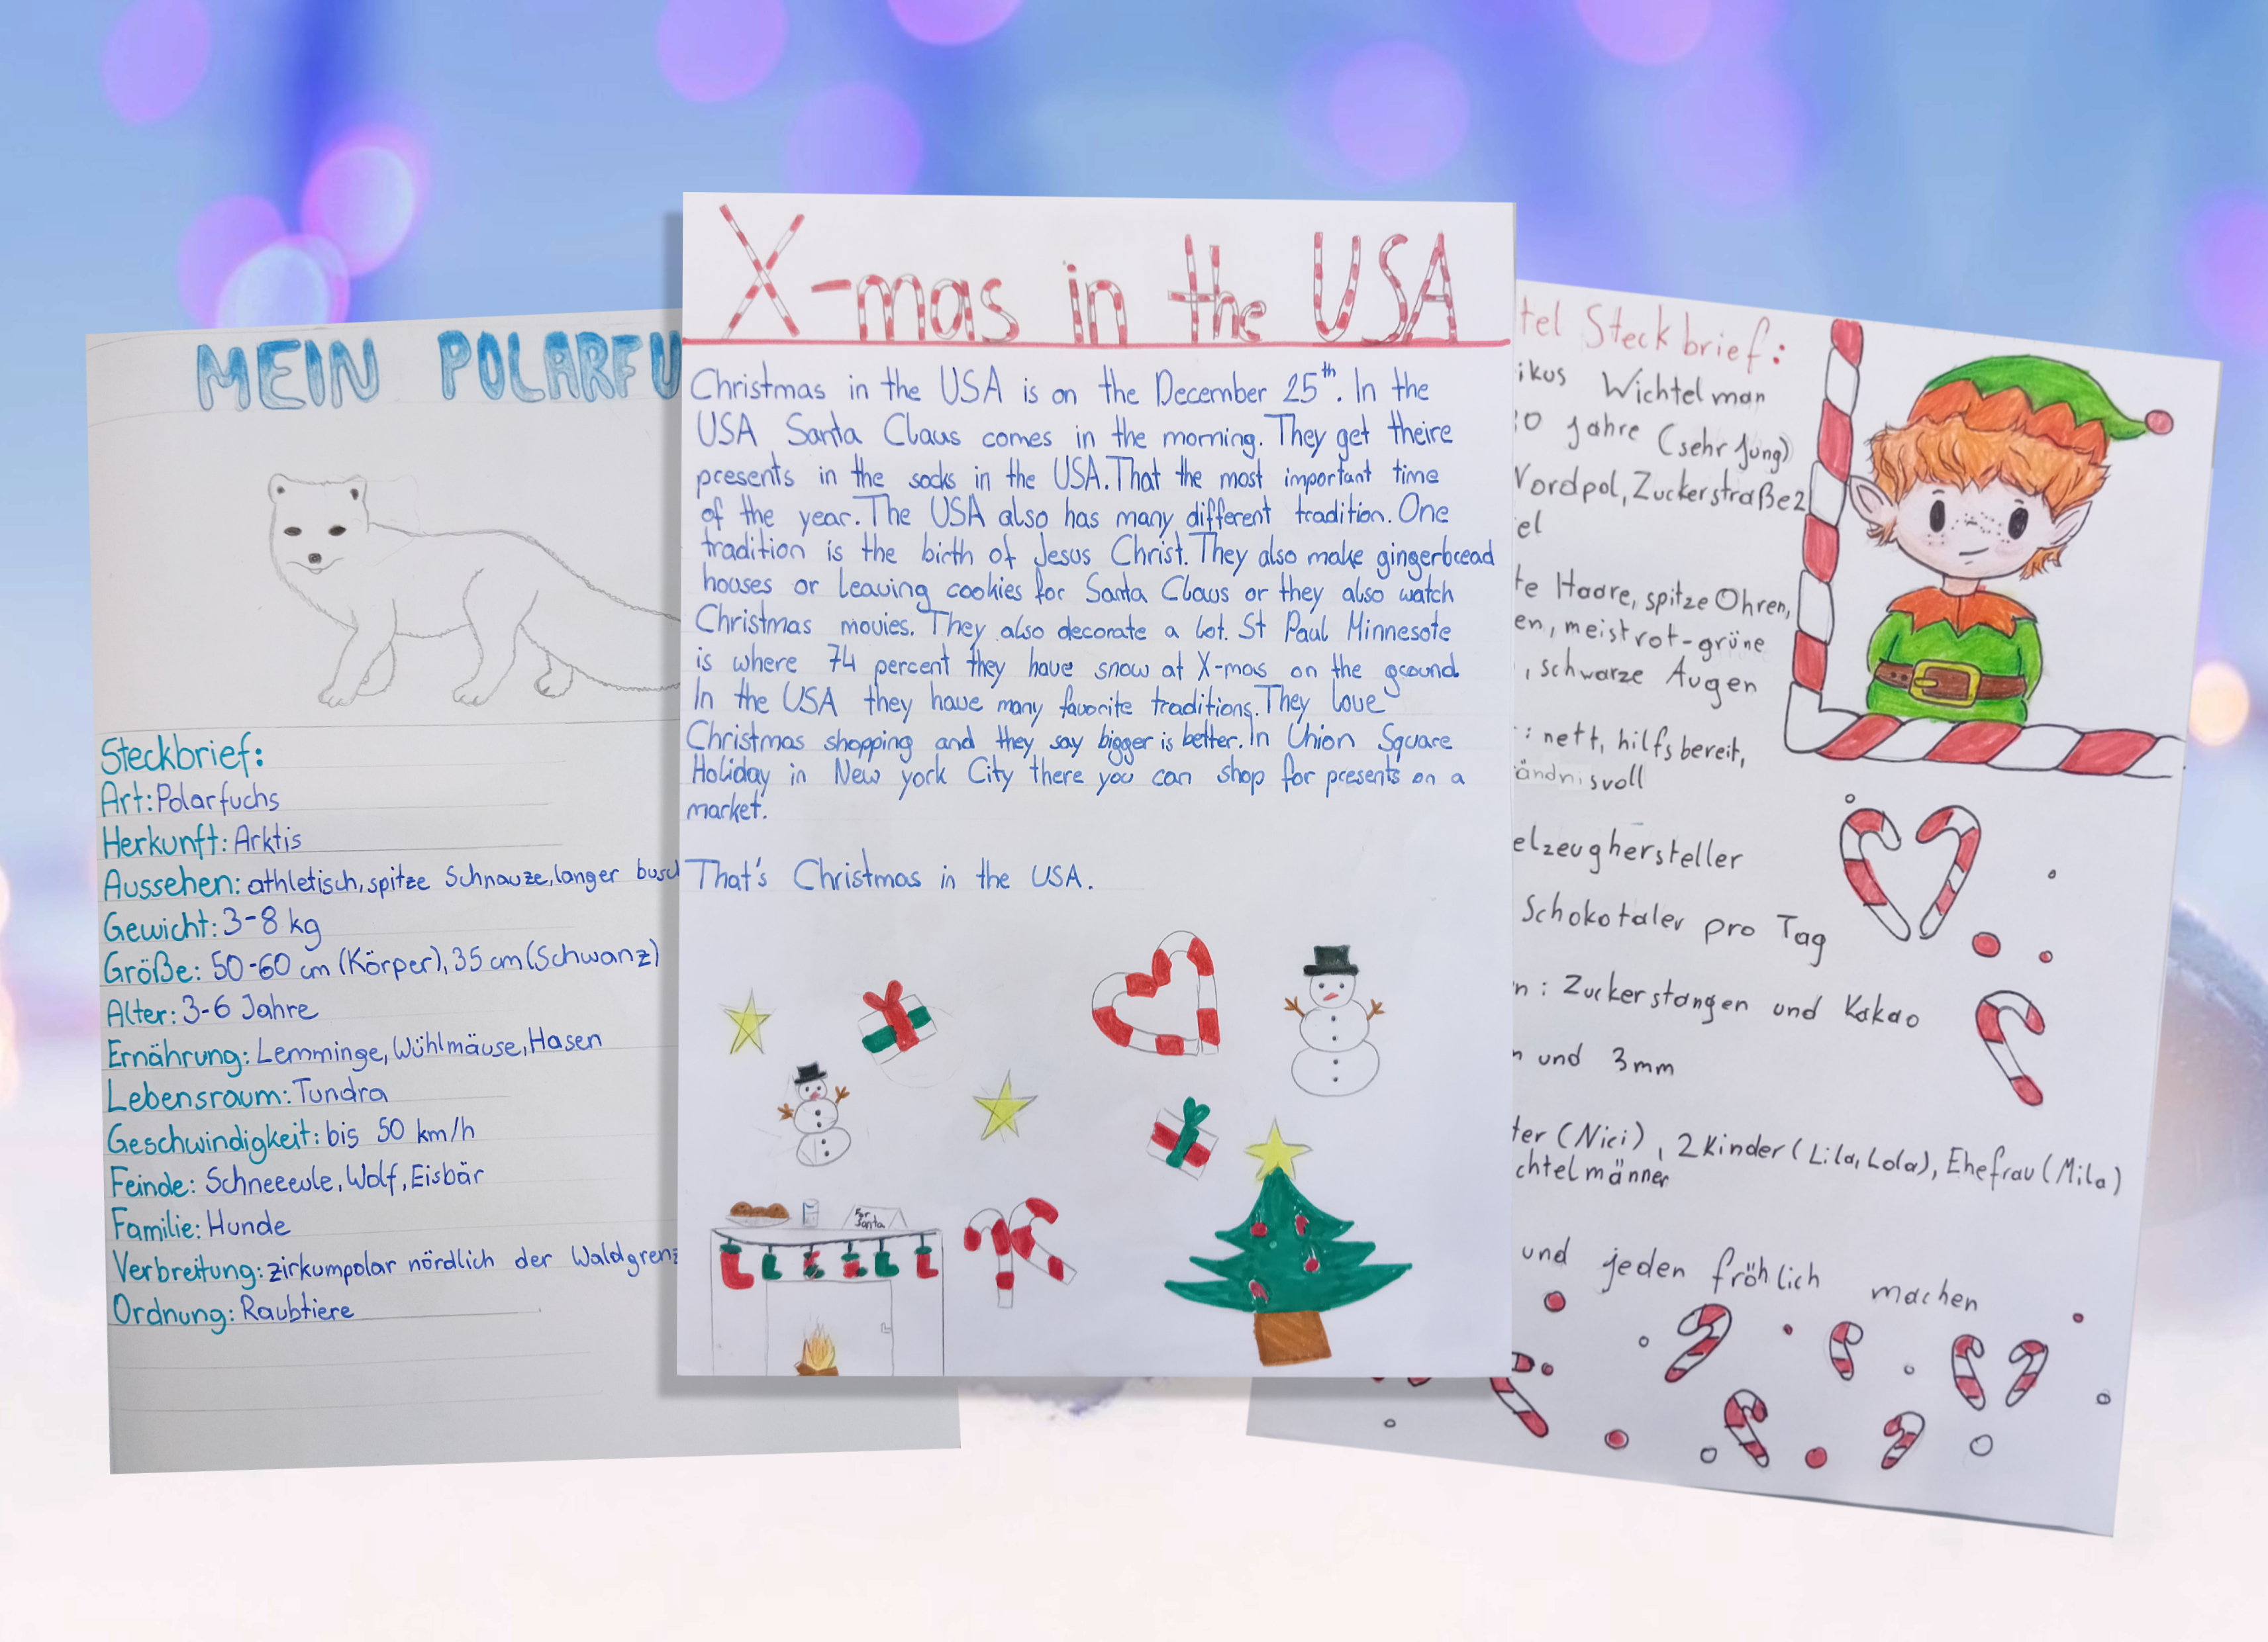 MEIN POLARFU
Steckbrief:
Art: Polarfuchs
Herkunft: Arktis
Aussehen: athletisch, spitze Schnauze, langer busch
Gewicht: 3-8 kg
Größe: 50-60 cm (Körper), 35 cm (Schwanz)
Alter: 3-6 Jahre
Ernährung: Lemminge, Wühlmäuse, Hasen
Lebensraum: Tundra
Geschwindigkeit: bis 50 km/h
Feinde: Schneeeule, Wolf, Eisbär
Familie: Hunde
Verbreitung: zirkumpolar nördlich der Waldgrenz
Ordnung: Raubtiere
X-mas in the USA
Christmas in the USA is on the December 25th. In the
USA Santa Claus comes in the morning. They get theire
presents in the socks in the USA. That the most important time
of the year. The USA also has many different tradition. One
tradition is the birth of Jesus Christ. They also make gingerbread
houses or leaving cookies for Santa Claus or they also watch
Christmas movies. They also decorate a lot. St Paul Minnesote
is where 74 percent they have snow at X-mas on the ground
In the USA they have many favorite traditions. They love
Christmas shopping and they say bigger is better. In Union Square
Holiday in New york City there you can shop for presents on a
market.
That's Christmas in the USA.
For
Santa
tel Steckbrief:
ikus Wichtelman
0 Jahre (sehr Jung)
Nordpol, Zuckerstraße 2
el
te Haare, spitze Ohren,
en, meist rot-grüne
, schwarze Augen
: nett, hilfsbereit,
ändnisvoll
elzeughersteller
Schokotaler pro Tag
n: Zuckerstangen und Kakao
n und 3mm
ter (Nici), 2 Kinder (Lila, Lola), Ehefrau (Mila)
chtelmänner
und jeden fröhlich machen